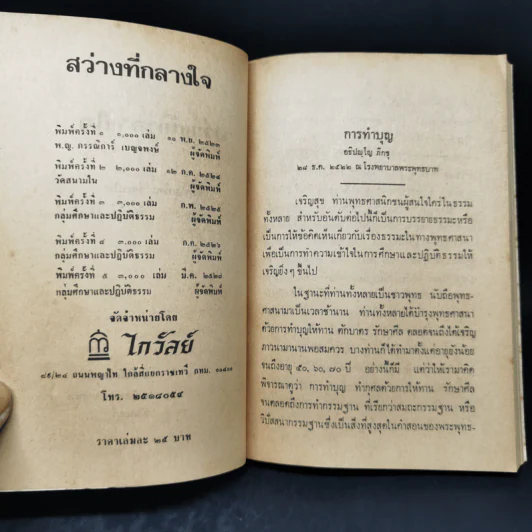 สว่างที่กลางใจ
พิมพ์ครั้งที่ ๑ ๑,๐๐๐ เล่ม ๑๐ พ.ย. ๒๕๒๓
พ.ญ. กรรณิการ์ เบญจพงษ์ ผู้จัดพิมพ์
พิมพ์ครั้งที่ ๒ ๒,๐๐๐ เล่ม ๑๒ ก.ค. ๒๕๒๔
วัดสนามใน ผู้จัดพิมพ์
พิมพ์ครั้งที่ ๓ ๓,๐๐๐ เล่ม ก.พ. ๒๕๒๕
กลุ่มศึกษาและปฏิบัติธรรม ผู้จัดพิมพ์
พิมพ์ครั้งที่ ๔ ๓,๐๐๐ เล่ม ก.ค. ๒๕๒๖
กลุ่มศึกษาและปฏิบัติธรรม ผู้จัดพิมพ์
พิมพ์ครั้งที่ ๕ ๓,๐๐๐ เล่ม มี.ค. ๒๕๒๘
กลุ่มศึกษาและปฏิบัติธรรม ผู้จัดพิมพ์
จัดจำหน่ายโดย
ไกวัลย์
๘๙/๒๔ ถนนพญาไท ใกล้สี่แยกราชเทวี กทม. ๑๐๔๐๐
โทร. ๒๕๑๘๐๕๔
ราคาเล่มละ ๒๕ บาท
การทำบุญ
อธิปญฺโญ ภิกขุ
๒๘ ธ.ค. ๒๕๒๒ ณ โรงพยาบาลพระพุทธบาท
เจริญสุข ท่านพุทธศาสนิกชนผู้สนใจใคร่ในธรรม
ทั้งหลาย สำหรับอันดับต่อไปนี้ก็เป็นการบรรยายธรรมะหรือ
เป็นการให้ข้อคิดเห็นเกี่ยวกับเรื่องธรรมะในทางพุทธศาสนา
เพื่อเป็นการทำความเข้าใจในการศึกษาและปฏิบัติธรรมให้
เจริญยิ่ง ๆ ขึ้นไป
ในฐานะที่ท่านทั้งหลายเป็นชาวพุทธ นับถือพุทธ-
ศาสนามาเป็นเวลาช้านาน ท่านทั้งหลายได้บำรุงพุทธศาสนา
ด้วยการทำบุญให้ทาน ตักบาตร รักษาศีล ตลอดจนถึงได้เจริญ
ภาวนามานานพอสมควร บางท่านก็ได้ทำมาตั้งแต่อายุยังน้อย
จนถึงอายุ ๕๐, ๖๐, ๗๐ ปี อย่างนี้ก็มี แต่ว่าให้เรามาคิด
พิจารณาดูว่า การทำบุญ ทำกุศลด้วยการให้ทาน รักษาศีล
จนตลอดถึงการทำกรรมฐาน ที่เรียกว่าสมถะกรรมฐาน หรือ
วิปัสสนากรรมฐานซึ่งเป็นสิ่งที่สูงสุดในคำสอนของพระพุทธ-